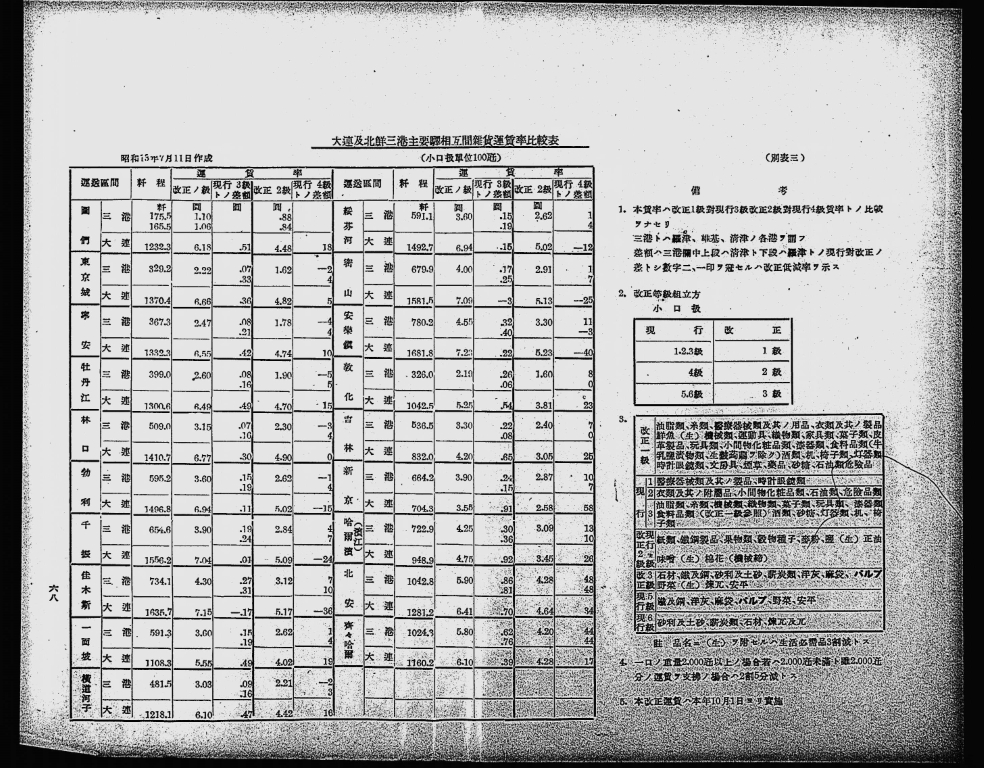 大連及北鮮三港主要驛相互間雜貨運賃率比較表
昭和15年7月11日作成
(小口扱單位100瓩)
(別表三)
運送區間 粁程 運賃率 運送區間 粁程 運賃率
改正1級 現行3級トノ差額 改正2級 現行4級トノ差額 改正1級 現行3級トノ差額 改正2級 現行4級トノ差額
粁 圓 圓 圓 粁 圓 圓
圖們 三港 175.5 1.10 .88
165.5 1.06 .84
大連 1232.3 6.18 .51 4.48 18
東京城 三港 329.2 2.22 .07 1.62 —2
.33 4
大連 1370.4 6.66 .36 4.82 5
寧安 三港 367.3 2.47 .08 1.78 —4
.21 4
大連 1332.3 6.55 .42 4.74 10
牡丹江 三港 399.0 2.60 .08 1.90 —5
.16 5
大連 1300.6 6.49 .49 4.70 15
林口 三港 509.0 3.15 .07 2.30 —3
.16 4
大連 1410.7 6.77 .30 4.90 0
勃利 三港 595.2 3.60 .15 2.62 —1
.19 4
大連 1496.8 6.94 .11 5.02 —15
千振 三港 654.6 3.90 .19 2.84 4
.24 7
大連 1556.2 7.04 .01 5.09 —24
佳木斯 三港 734.1 4.30 .27 3.12 7
.31 10
大連 1635.7 7.15 —.17 5.17 —36
一面坡 三港 591.3 3.60 .15 2.62 1
.19 4
大連 1108.3 5.55 .49 4.02 19
橫道河子 三港 481.5 3.03 .09 2.21 —2
.16 3
大連 1218.1 6.10 .47 4.42 16
綏芬河 三港 591.1 3.60 .15 2.62 1
.19 4
大連 1492.7 6.94 .15 5.02 —12
密山 三港 679.9 4.00 .17 2.91 1
.25 7
大連 1581.5 7.09 —3 5.13 —25
三港 780.2 4.55 .32 3.30 11
.40 —3
大連 1681.8 7.23 .22 5.23 —40
敦化 三港 326.0 2.19 .26 1.60 8
.06 0
大連 1042.5 5.25 .54 3.81 23
吉林 三港 536.5 3.30 .22 2.40 7
.08 0
大連 832.0 4.20 .65 3.05 25
新京 三港 664.2 3.90 .24 2.87 10
.15 7
大連 704.3 3.55 .91 2.58 58
哈爾濱(濱江) 三港 722.9 4.25 .30 3.09 13
.36 10
大連 948.9 4.75 .92 3.45 26
北安 三港 1042.8 5.90 .86 4.28 48
.81 48
大連 1281.2 6.41 .70 4.64 34
齊々哈爾 三港 1024.3 5.80 .62 4.20 44
.76 44
大連 1160.2 6.10 .39 4.28 17
六八
備考
1. 本賃率ハ改正1級對現行3級改正2級對現行4級賃率トノ比較
ヲナセリ
三港トハ羅津、雄基、清津ノ各港ヲ謂フ
差額ハ三港欄中上段ハ清津ト下段ハ羅津トノ現行對改正ノ
差トシ數字ニ、一印ヲ冠セルハ改正低減率ヲ示ス
2. 改正等級組立方
小口扱
現行 改正
1.2.3級 1級
4級 2級
5.6級 3級
3.
改正一級 油脂類、糸類、醫療器械類及其ノ用品、衣類及其ノ製品
鮮魚(生)機械類、運動具、織物類、家具類、菓子類、皮
革製品、玩具類、小間物化粧品類、漆器類、食料品類(牛
時計眼鏡類、文房具、煙草、藥品、砂糖、石油類危險品
現行 1 醫療器械類及其ノ製品、時計眼鏡類
2 衣類及其ノ附屬品、小間物化粧品類、石油類、危險品類
3 油脂類、糸類、機械類、織物類、菓子類、玩具類、漆器類
食料品類(改正一級參照)酒類、砂糖、灯器類、机、椅
子類
味噌(生)棉花(機械締)
改3正級 石材、鐵及鋼、砂利及土砂、薪炭類、洋灰、麻袋、パルプ
野菜(生)煉瓦、安平
現5行級 鐵及鋼、洋灰、麻袋、パルプ、野菜、安平
現6行級 砂利及土砂、薪炭類、石材、煉瓦及瓦
註 品名ニ(生)ヲ附セルハ生活必需品3割減トス
4. 一口ノ重量2.000瓩以上ノ場合若ハ2.000瓩未滿ト雖2.000瓩
分ノ運賃ヲ支拂フ場合ハ2割5分減トス
5. 本改正運賃ハ本年10月1日ヨリ實施